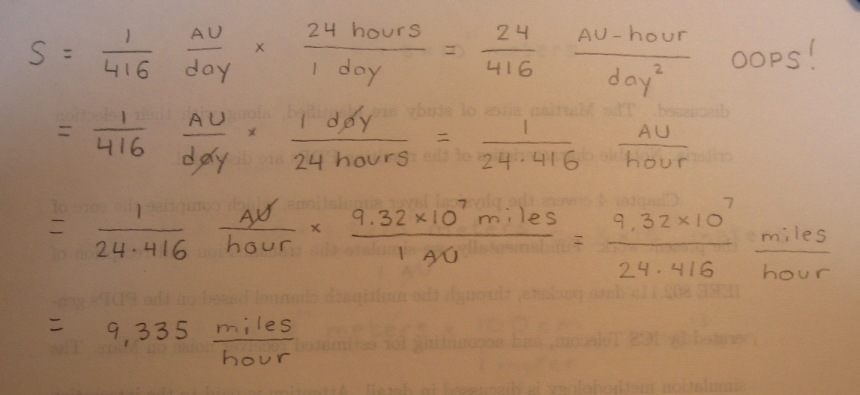 S = 1/416 AU/day × 24 hours/1 day = 24/416 AU-hour/day² OOPS!
= 1/416 AU/day × 1 day/24 hours = 1/24·416 AU/hour
= 1/24·416 AU/hour × 9.32×10⁷ miles/1 AU = 9,32×10⁷/24.416 miles/hour
= 9,335 miles/hour